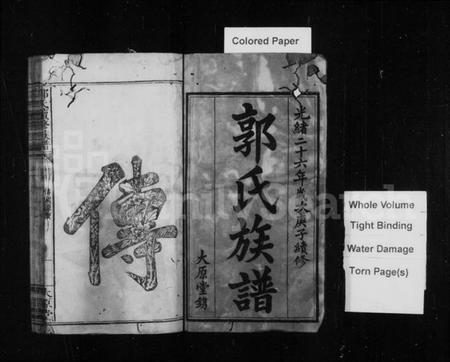 Colored Paper
光緒二十六年歲次庚子續修
郭氏族譜
太原堂鐫
傳
Whole Volume
Tight Binding
Water Damage
Torn Page(s)
FamilySearch